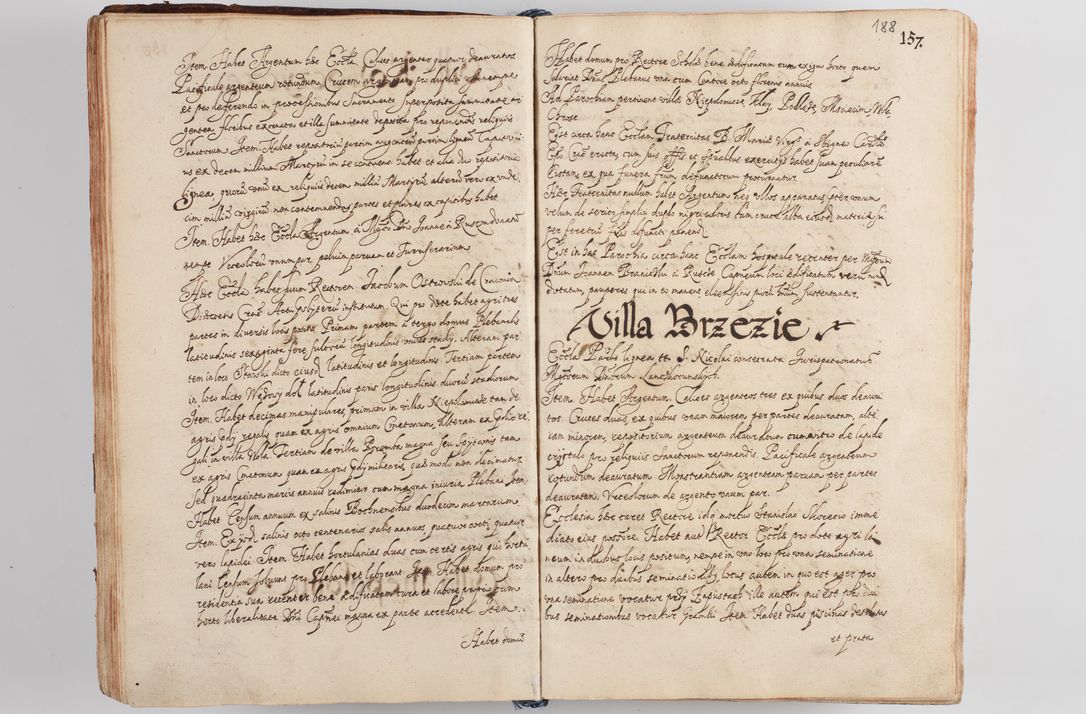 Item Habet Argentum hæc Eccla. Calices argenteos quatuor deauratos
Pacificale argenteum rotundum, Crucem argenteam pro duplici usu nempe
et pro deferendo in processionibus Sacramento superposita summitate ar
gentea floribus exornata et illa summitate deposita pro reponendis reliquiis
Sanctorum. Item Habet repositorium partim argenteum partim ligneum Caput
us ex decem millium Martyrũ in se continens habet et alia duo repositoria
lignea, quorũ unũ ex reliquiis decem milliũ Martyrũ alterũ vero ex unde
cim milliũ virginũ non contemnendas partes et plures ex capitibus habet
Item. Habet hæc Eccla Argentum a Mgco Dno Joanne
nempe Urceolorum unum par, pelvim parvam et Turriferarium
Hæc Eccla habet suum Rectorem Jacobum Ostrowski de Cracovia
Diœcesis Cracẽ Actu psbyterũ institutum Qui pro dote habet agri tres
partes in diversis locis positas Primam partem a tergo domus Plebanalis
latitudinis sexaginta fere sulcorũ longitudinis unius stadij. Alteram par
tem in loco Stawki dicto eiusd latitudinis et longitudinis. Tertiam partem
in loco dicto Wądoły dol latitudinis paris longitudinis duorũ stadiorum
Item. Habet decimas manipulares primam in villa Niepolomice tam de
agris pdij regalis quam ex agris omnium Cmetonum, alteram ex pdio re
gali in villa Wola Tertiam de villa magna seu tam
ex agris Cmetonum quam ex agris pdij militaris, quæ modo non decimatur
sed quadraginta marcis annuis redimitur cum magna iniuria Plebani Item
Habet Censum annuum ex salinis Bochnensibus duodecim marcarum
Item. Ex ijsd. salinis octo centenarios salis annuos quatuor cocti quatuor
vero lapidei. Item Habet hortulanias duas cum certis agris qui hortu
lani Censum solvunt pro Plebano et laborant. Item Habet domum pro
residentia sua recenter bene ædificatam cura et labore proprio tum
horto liberalitate Dni Capnei magna ex parte accedente Item.
Habet domũ
188
157.
Habet domum pro Rectore Scholæ bene ædificatam cum exiguo horto quem
salariat Dnus Plebanus una cum Cantore octo florenis annuis
Ad Parochiam pertinent villæ Niepolomice, Kłay, Podłęże, Wola,
Est circa hanc Ecclam Fraternitas B Mariæ Virgs a Hugone Cardli
Epo Cracẽ erecta, cum suis offis et spualibus exercitijs habet suam peculiarẽ
Cistam, ex qua funera frum defunctorum procurantur.
Hæc Fraternitas nullum habet Argentum neq ullos apparatus præter unum
velum de serico simplici duplo nigricoloris tum cruce alba eiusd materiæ su
per feretrũ frs defuncti ponend
Est in hac Parochia circa hanc Ecclam hospitale recenter per
Dnum Joannem Branicki a Ruscze Capneum loci ædificatum verũ nond
dotatum, pauperes qui in eo manent eleemosinis sustentantur.
Villa Brzezie
Eccla Parlis lignea ttl. S. Nicolai consecrata Jurispatronatus
Mgcorum Dnorum Lanczkorunskych.
Item. Habet Argentum. Calices argenteos tres ex quibus duos deaura
tos. Cruces duas, ex quibus unam maiorem per partes deauratam, alte
ram minorem, repositorium argenteum deauratum cum vitro de lapide
crystalo pro reliquiis Sanctorum reponendis. Pacificale argenteum
rotundum deauratum. Monstrantiam argenteam parvam per partes
deauratam. Urceolorum de argento unum par.
Ecclesia hæc caret Rectore ido mortuo Stanislao Skorecio imme
diato eius possore. Habet aut Rector Ecclæ pro dote agri la
neum in duobus locis positum, nempe in uno loco pro una seminatione
in altero pro duabus seminationibus, locus autem in quo est ager pro
una seminatione vocatur ille autem qui est pro dua
bus seminationibus vocatur Item. Habet duas piscinas desertas
et prata